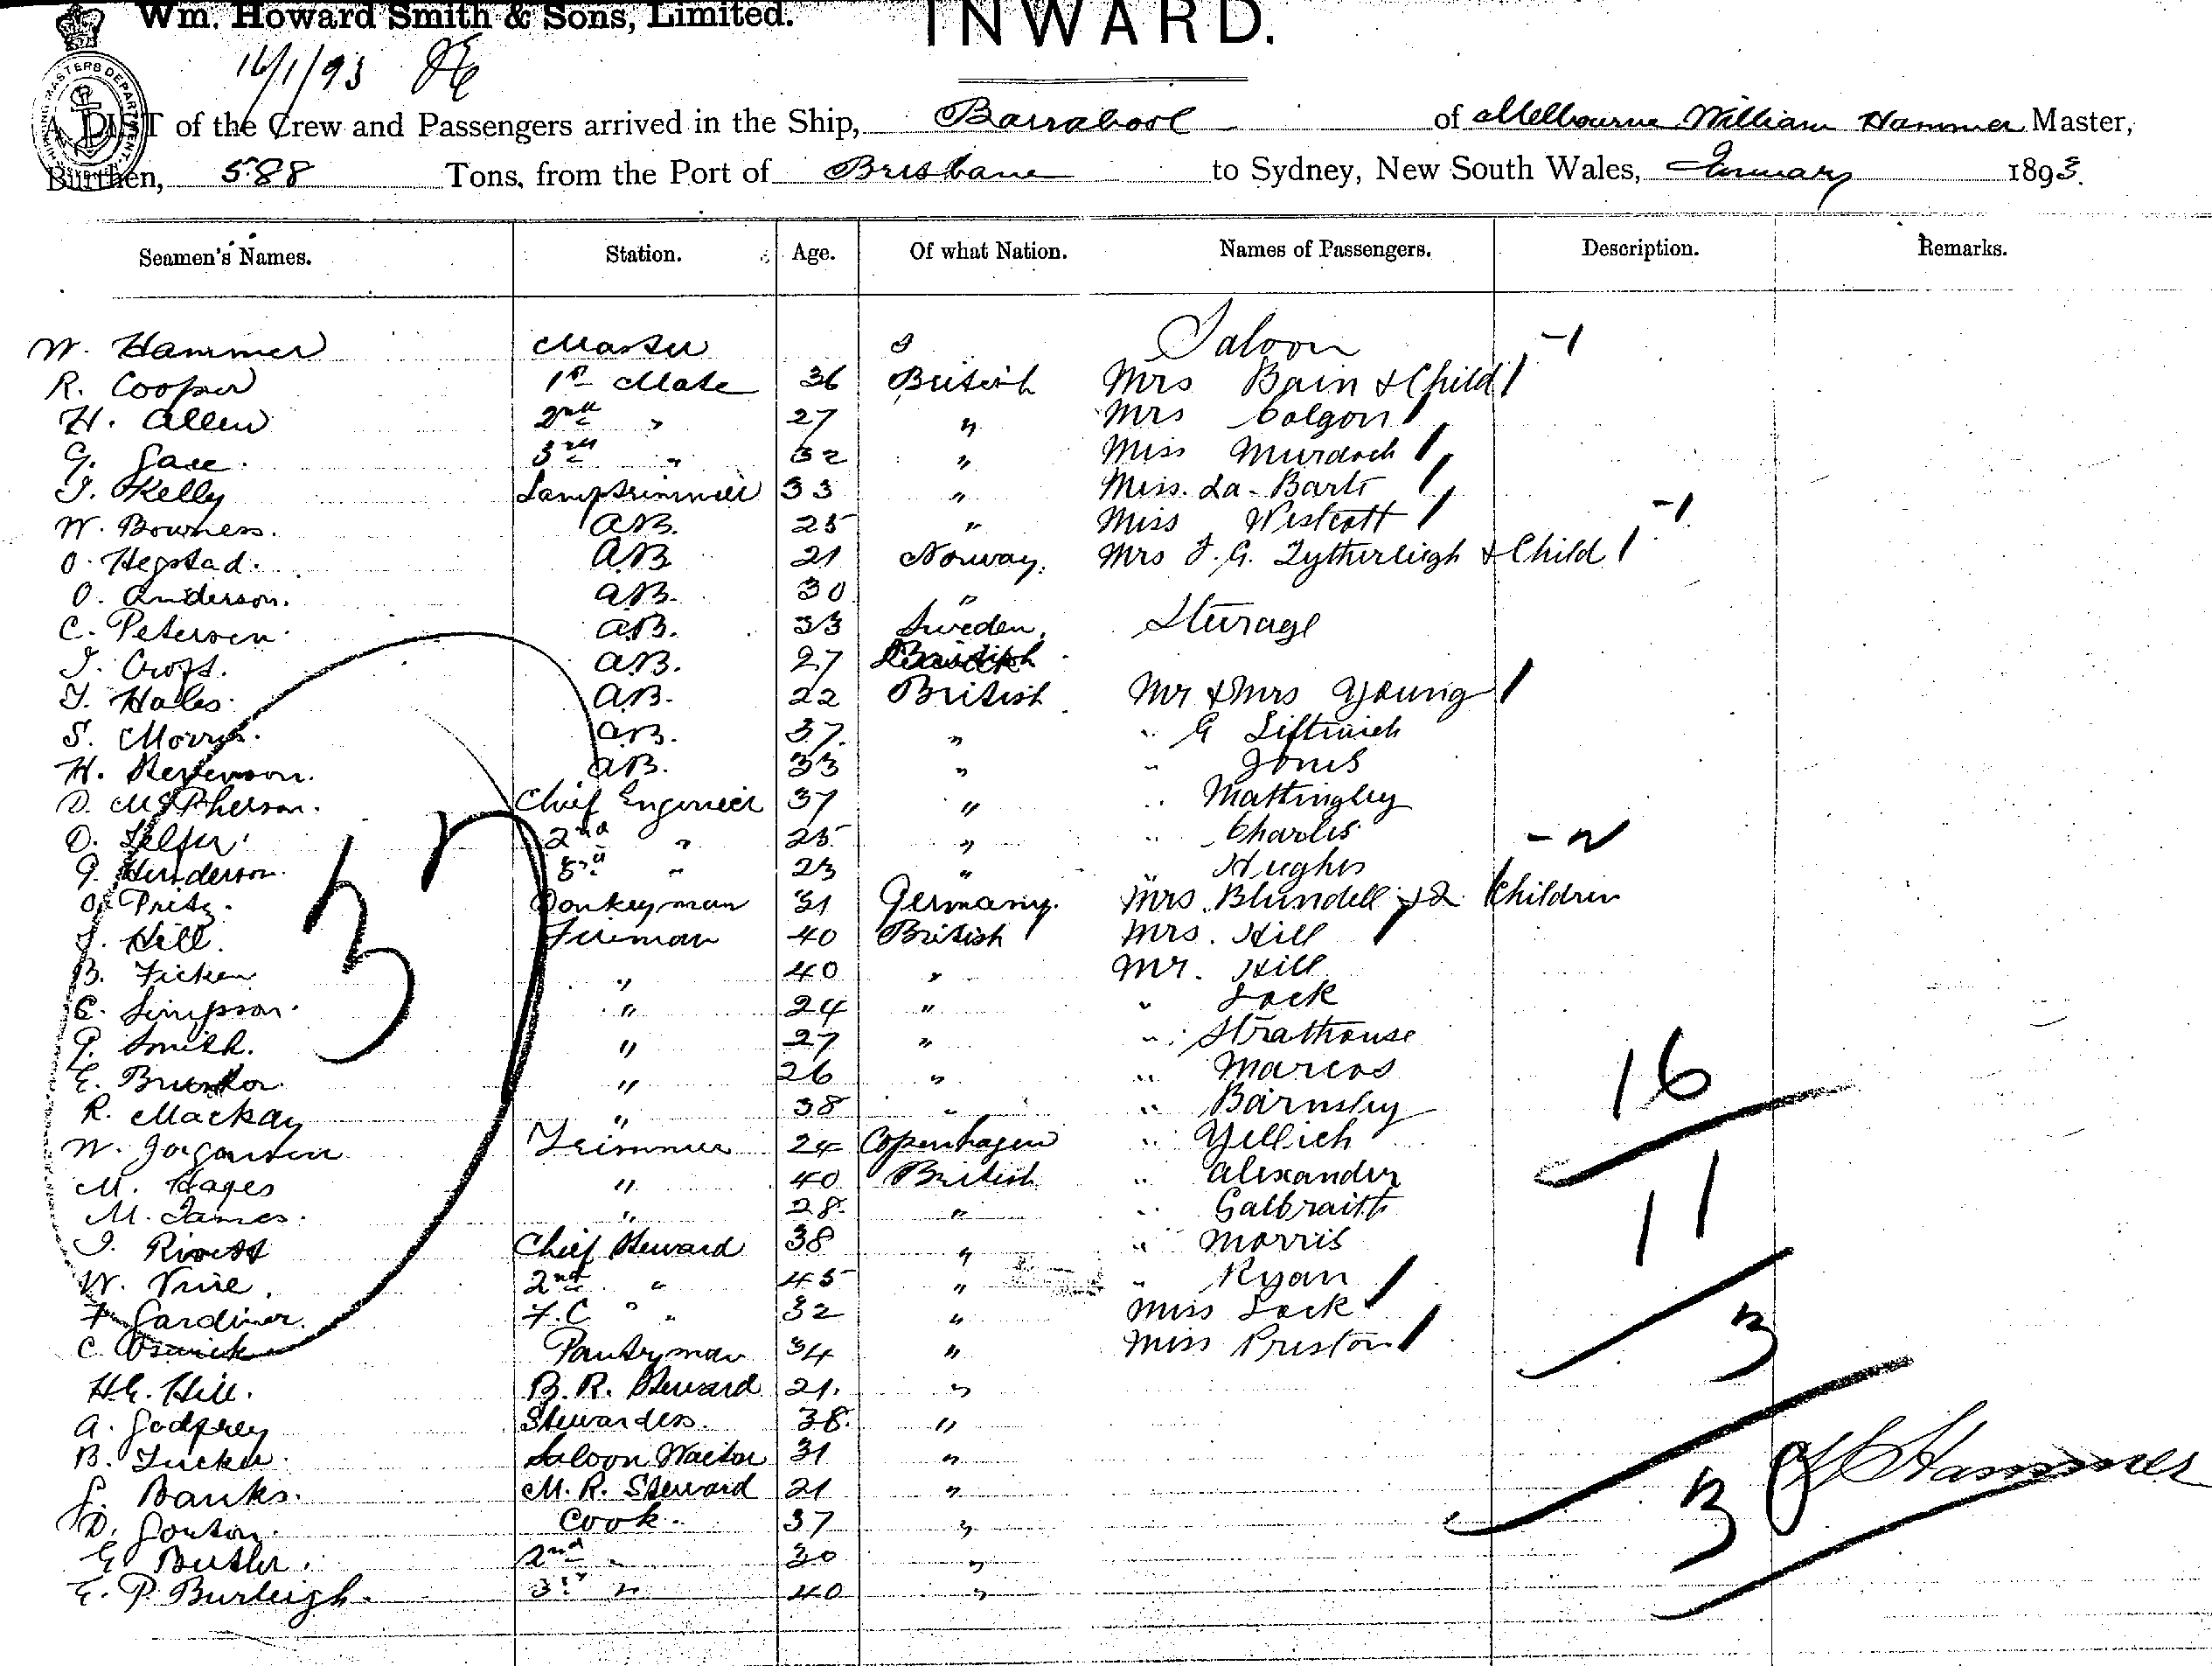 Wm. Howard Smith & Sons, Limited.
INWARD.
16/1/93
A LIST of the Crew and Passengers arrived in the Ship, Barrabool of Melbourne William Hammer Master,
Burthen, 588 Tons, from the Port of Brisbane to Sydney, New South Wales, January 1893.
Seamen's Names. Station. Age. Of what Nation. Names of Passengers. Description. Remarks.
W. Hammer Master Saloon -1
R. Cooper 1st Mate 36 British Mrs Bain & Child
H. Allen 2nd " 27 " Mrs Colgon
G. 3rd " 32 " Miss Murdoch
Kelly Lamptrimmer 33 " Miss. La-Barte
W. Bowness. A.B. 25 " Miss Westcott -1
O. Hegstad. AB 21 Norway. Mrs J. G. Tytherleigh & Child
O. Anderson. AB. 30 " Steerage
C. Petersen A.B. 33 Sweden.
Croft. A.B. 27
Hales A.B. 22 British Mr & Mrs Young
S. Morris. A.B. 37. " " G
H. Stevenson. A.B. 33 " " Jones
D. McPherson. Chief Engineer 37 " " Mattingley
D. Telfer 2nd " 25 " " Charles - 2
G. Henderson. 3rd " 23 " " Hughes
O. Pritz. Donkeyman 31 Germany. Mrs. Blundell & 2 Children
J. Hill. Fireman 40 British Mrs. Hill
B. Ficken " 40 " Mr. Hill
C. Simpson. " 24 " " Lock
G. Smith. " 27 " " Strathouse
E. " 26 " " Marcos
R. Mackay " 38 " " Barnsley
W. Jorgansen Trimmer 24 Copenhagen " Yellich
M. Hages " 40 British " Alexander
M. James. " 28. " " Galbraith
Chief Steward 38 " " Morris
W. 2nd " 45 " " Ryan
F. Gardiner. F.C " " 32 " Miss Lock
C. Pantryman 34 " Miss Preston
H.E. Hill. B. R. Steward 21. "
A. Godfrey Stewardess. 38. "
B. Tucker. Saloon Waiter 31 "
Banks. M. R. Steward 21 "
D. Cook. 37 "
E Butler. 2nd " 30 "
E. P. Burleigh. 3rd " 40 "
37
16
11
3
3
Hammer